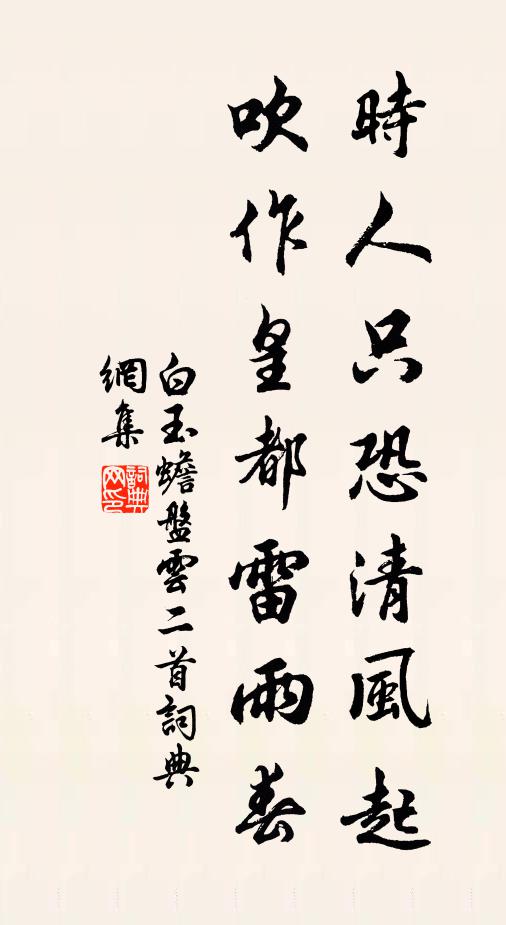 時人只恐清風起
吹作皇都雷雨春
白玉蟾盤雲二首詞典
網集
詞典
網印